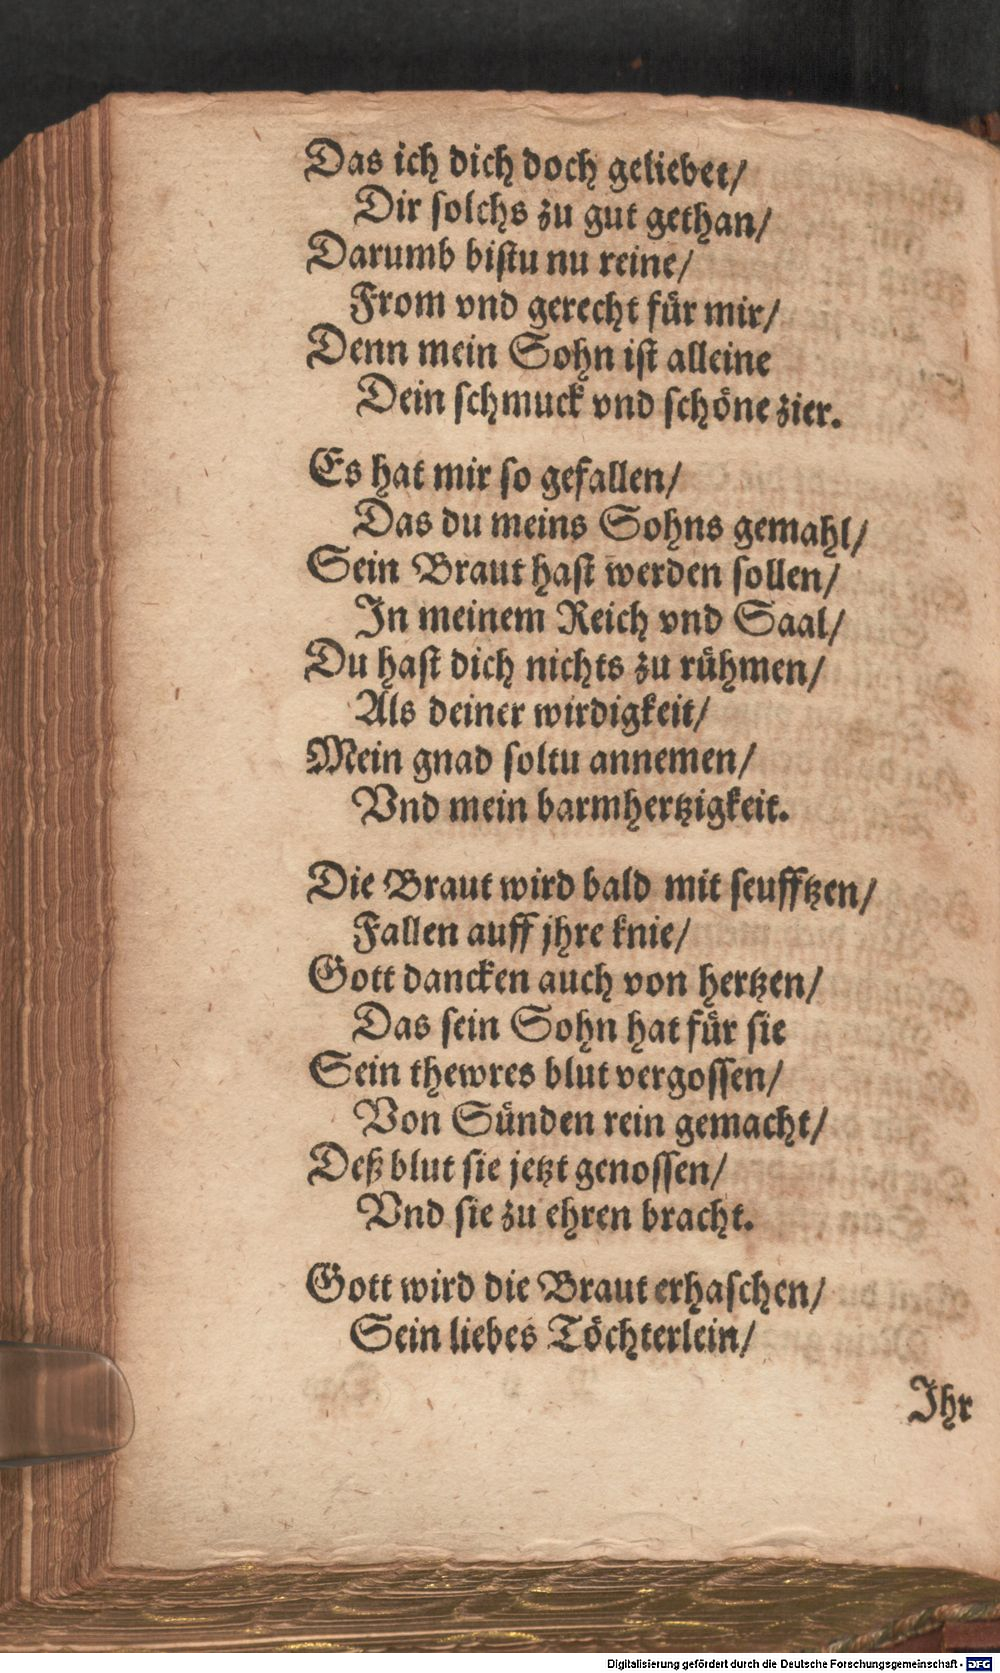 Das ich dich doch geliebet/
Dir solchs zu gut gethan/
Darumb bistu nu reine/
From vnd gerecht für mir/
Denn mein Sohn ist alleine
Dein schmuck vnd schöne zier.
Es hat mir so gefallen/
Das du meins Sohns gemahl/
Sein Braut hast werden sollen/
In meinem Reich vnd Saal/
Du hast dich nichts zu rühmen/
Als deiner wirdigkeit/
Mein gnad soltu annemen/
Vnd mein barmhertzigkeit.
Die Braut wird bald mit seufftzen/
Fallen auff jhre knie/
Gott dancken auch von hertzen/
Das sein Sohn hat für sie
Sein thewres blut vergossen/
Von Sünden rein gemacht/
Deß blut sie jetzt genossen/
Vnd sie zu ehren bracht.
Gott wird die Braut erhaschen/
Sein liebes Töchterlein/
Ihr
Digitalisierung gefördert durch die Deutsche Forschungsgemeinschaft - DFG